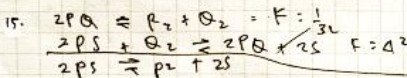 15. 2PQ ⇌ P2 + Q2 = K = 1/32
2PS + Q2 ⇌ 2PQ + 2S K = Δ²
2PS ⇌ P2 + 2S